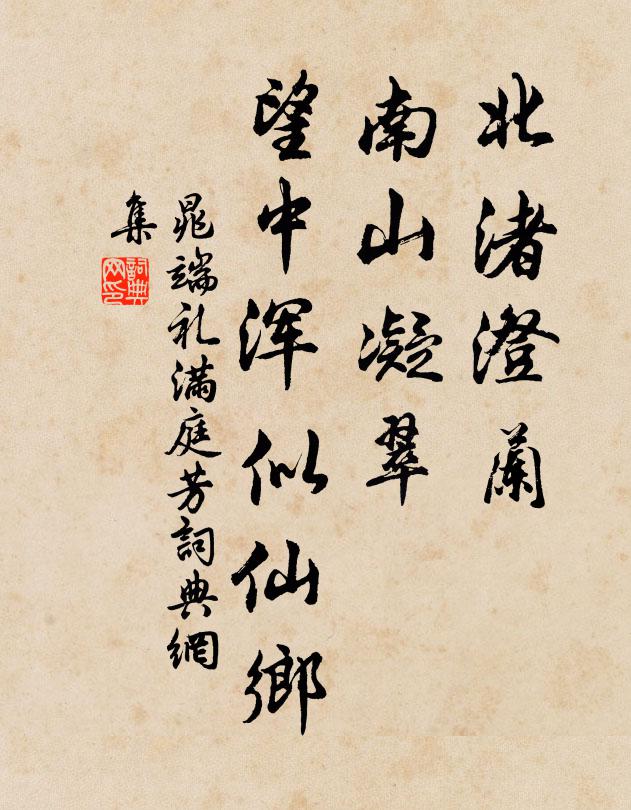 北渚澄蘭
南山凝翠
望中浑似仙鄉
晁端礼满庭芳詞典網
集
詞典网印